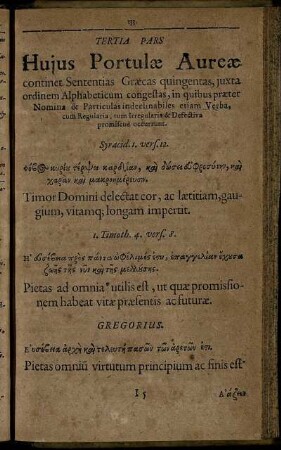 TERTIA PARS
Hujus Portulæ Aureæ
continet Sententias Græcas quingentas, juxta
ordinem Alphabeticum congestas, in quibus præter
Nomina & Particulas indeclinabiles etiam Verba,
tum Regularia, tum Irregularia & Defectiva
promiscuè occurrunt.
Syracid. 1. vers. 12.
κυρίου τέρψει καρδίαν, καὶ δώσει ἐυφροσύνην, καὶ
χαρὰν καὶ μακροημέρευσιν.
Timor Domini delectat cor, ac lætitiam, gau-
gium, vitamq; longam impertit.
1. Timoth. 4. vers. 8.
Η' ἐυσέβεια πρὸς πάντα ὠφέλιμός ἐστιν, ἐπαγγελίαν ἔχουσα
ζωῆς τῆς νῦν καὶ τῆς μελλούσης.
Pietas ad omnia utilis est, ut quæ promissio-
nem habeat vitæ præsentis ac futuræ.
GREGORIUS.
Ευσέβεια ἀρχὴ καὶ τελευτὴ πασῶν τῶν ἀρετῶν ἐστι.
Pietas omniū virtutum principium ac finis est.
I 5